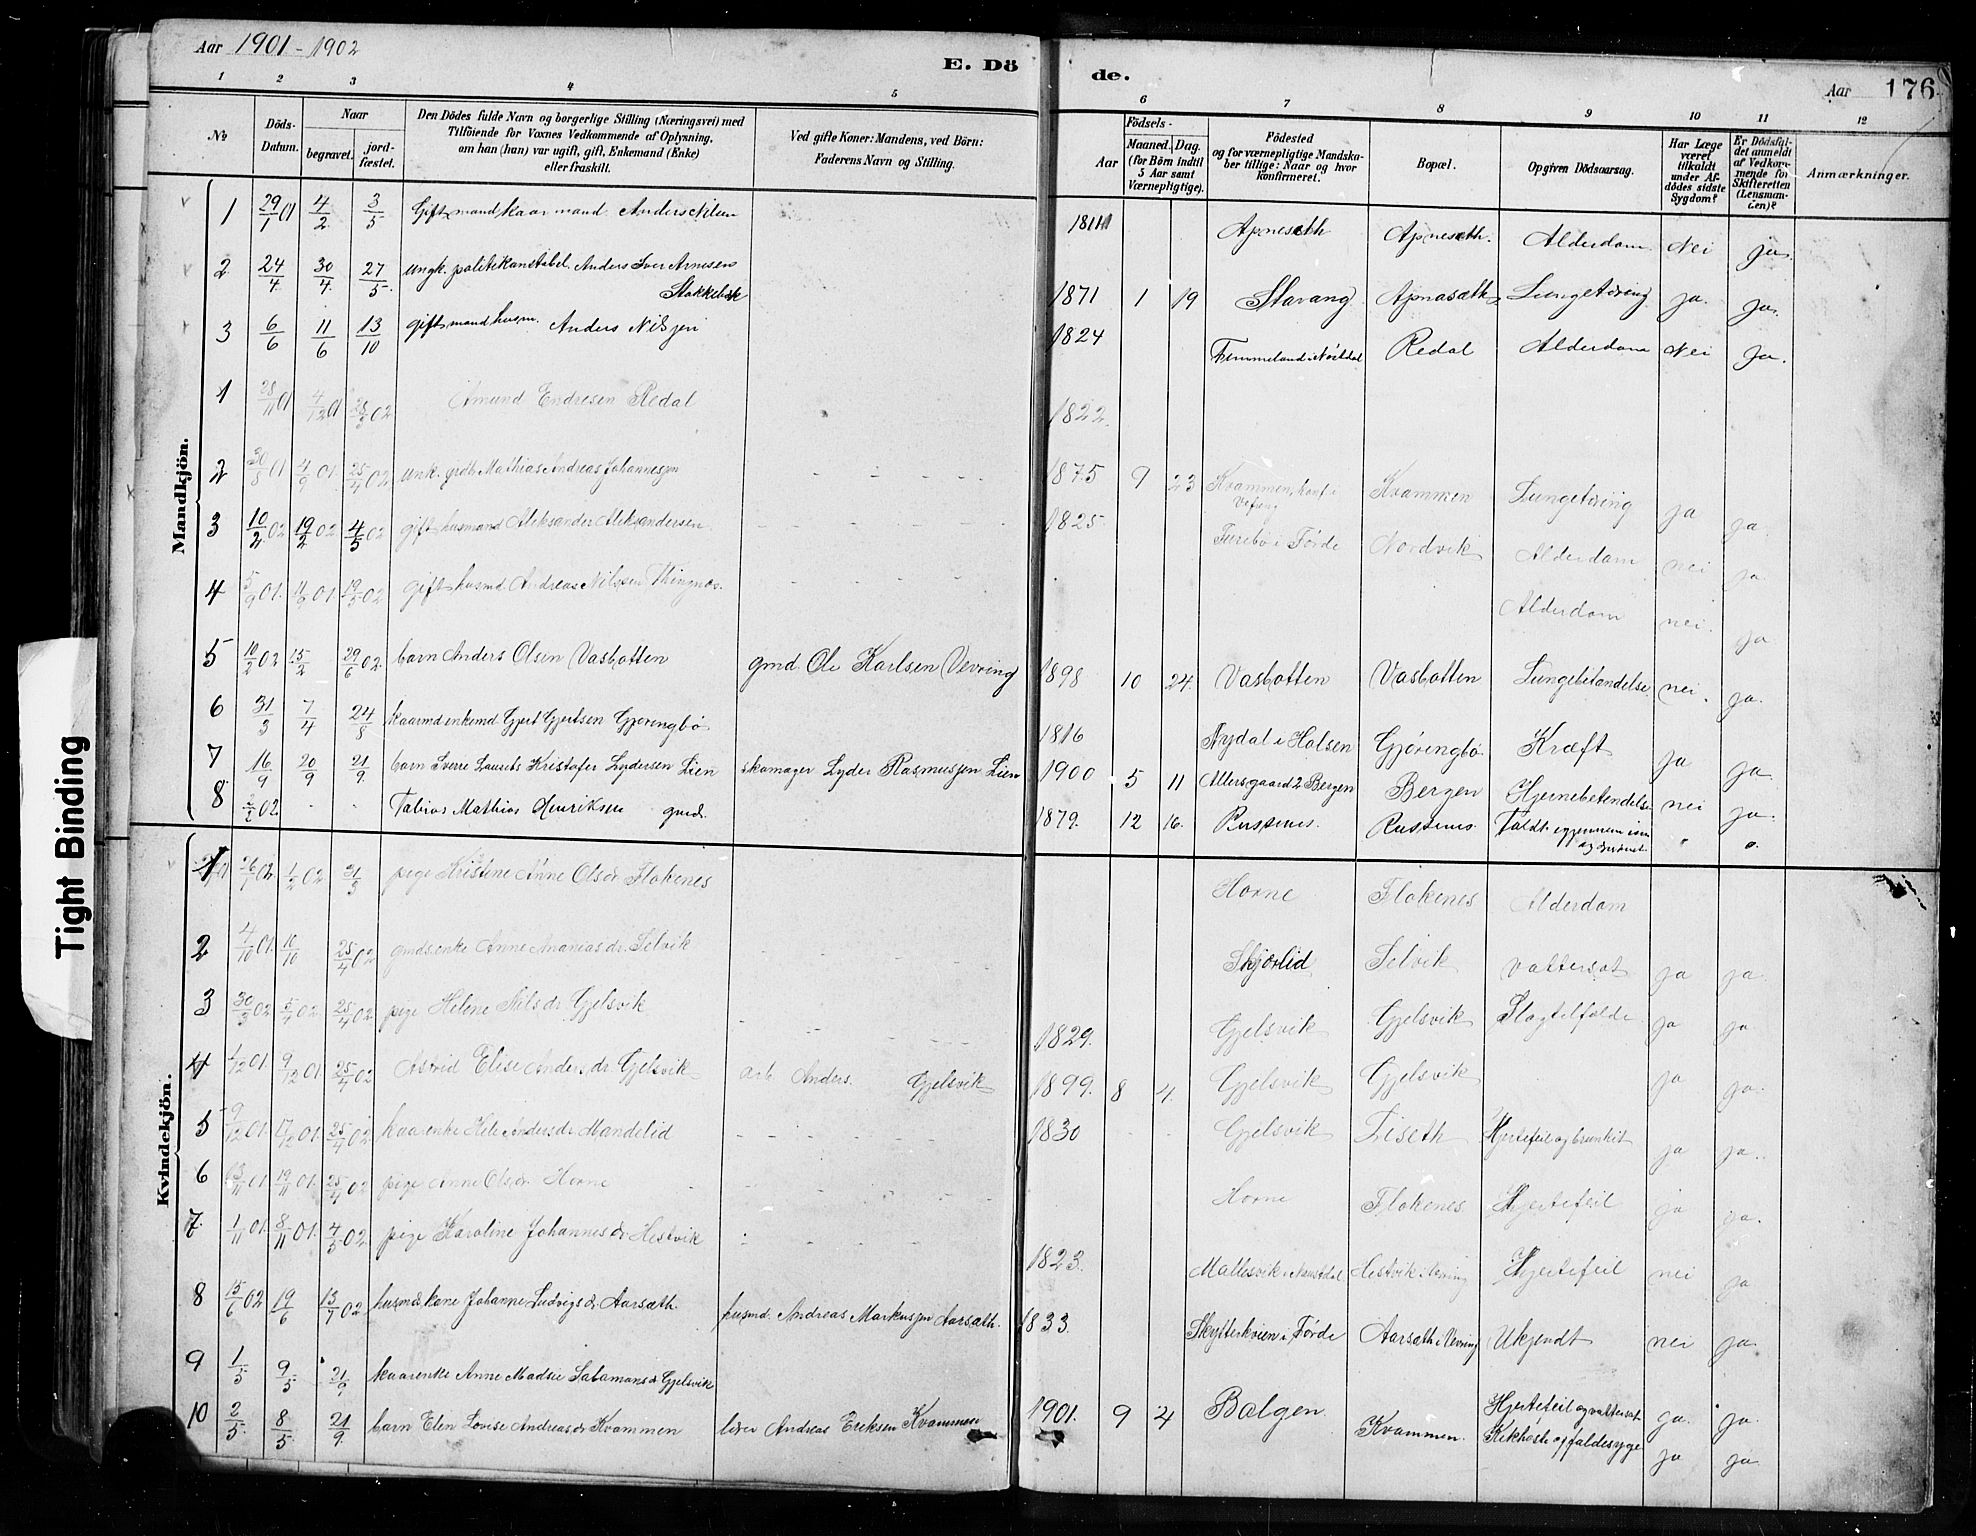 Aar 1901-1902
E. Dö
de.
Aar 176.
1 2 3 4 5 6 7 8 9 10 11 12
No
Döds-Datum.
Naar
begravet.
jord-fæstet.
Den Dödes fulde Navn og borgerlige Stilling (Næringsvei) med
Tilföiende for Voxnes Vedkommende af Oplysning,
om han (hun) var ugift, gift, Enkemand (Enke)
eller fraskilt.
Ved gifte Koner: Mandens, ved Börn:
Faderens Navn og Stilling.
Födsels-
Aar
Maaned. Dag.
(for Börn indtil
5 Aar samt
Værnepligtige).
Födested
og for værnepligtige Mandska-
ber tillige: Naar og hvor
konfirmeret.
Bopæl.
Opgiven Dödsaarsag.
Har Læge
været
tilkaldt
under Af-
dödes sidste
Sygdom?
Er Dödsfal-
det anmeldt
af Vedkom-
mende for
Skifteretten
(Lensman-
den)?
Anmærkninger.
Mandkjön.
1 29/1 01 4/2 3/5 Gift mand kaarmand Anders 1811 Apneseth Apneseth. Alderdom Nei Ja.
2 24/4 30/4 27/5 ungk. politikonstabel. Anders Iver Arnesen
Stokkebæk 1871 1 19 Stavang Apnasæth Lungetæring Ja. Ja.
3 6/6 11/6 13/10 gift mand husm. Anders Nilsen 1824 Femmeland i Nöstdal Redal Alderdom Nei Ja.
1 28/11 01 4/12 01 28/3 02 Amund Endresen Redal 1822.
2 30/8 01 4/9 01 25/4 02 unk. grdb. Mathias Andreas Johannesen 1875 9 23 Kvammen, konf. i
Vefring Kvammen Lungetæring ja ja.
3 10/2 02 19/2 02 4/5 02 gift husmand Aleksander Aleksandersen 1825 Furebö i Förde Nordvik Alderdom nei ja.
4 5/9 01. 11/9 01 19/5 02 gift husmd. Andreas Nilssen Thingnes. Alderdom nei. ja
5 10/2 02 15/2 29/6 02. barn Anders Olsen Vasbotten gmd. Ole Karlsen Vevring 1898 10 24. Vasbotten Vasbotten Lungebetændelse nei. ja.
6 31/3 7/4 24/8 kaarmd enkemd Gjert Gjertsen Gjöringbö 1816 Nydal i Holsen Gjöringbö Kræft ja ja
7 16/9 20/9 21/9 barn Sverre Laurits Kristofer Lydersen Lien skomager Lyder Rasmussen Lien 1900 5 11 Allersgaard 2 Bergen Bergen Hjernebetændelse nei ja.
8 2/2 02 Tabias Mathias Henriksen gmd. 1879. 12 16. Russenes. Russenes. Faldt igjennem isen
og druknet. " ".
Kvindekjön.
1 26/1 02 1/2 02 31/3 pige Kristine Anne Olsdr Flokenes Horne Flokenes Alderdom
2 4/10 01. 10/10 25/4 02 gmds.enke Anne Ananiasdr. Selvik Skjærlid Selvik Vattersot ja ja.
3 30/3 02 5/4 02 25/4 02 pige Helene Nilsdr Gjelsvik 1829. Gjelsvik Gjelsvik Slagtilfælde ja ja
4 1/12 01. 9/12 01. 25/4 02 Astrid Elise Andersdr. Gjelsvik arb Anders. Gjelsvik 1899. 8 4. Gjelsvik Gjelsvik ja ja.
5 9/12 01. 17/12 01. 25/4 02 kaarenke Hele Andersdr Mandelid 1830 Gjelsvik Liseth Hjertefeil og brunkit ja ja.
6 13/11 01 19/11 01. 25/4 02 pige Anne Olsdr Horne Horne Flokenes Hjertefeil ja ja.
7. 1/11 01. 8/11 01. 4/5 02 pige Karoline Johannesdr Hestvik 1823. Mallesvik i Naustdal Hestvik i Vevring Hjertefeil nei ja
8 15/6 02 19/6 13/7 02 husmdskone Johanne Ludvigsdr Aarsæth husmd. Andreas Markussen Aarsæth. 1833. Skytterkvien i Förde Aarsæth i Vevring Ukjendt nei ja.
9 1/5 9/5 21/9 kaarenke Anne Madsie Salamonsdr Gjelsvik Hjertefeil og vattersot ja. ja.
10 2/5 8/5 21/9. barn Elen Lovise Andreasdr Kvammen lærer Andreas Eriksen Kvammen 1901. 9 24 Balgen Kvammen. Kikhoste og faldesyge ja ja
Tight Binding